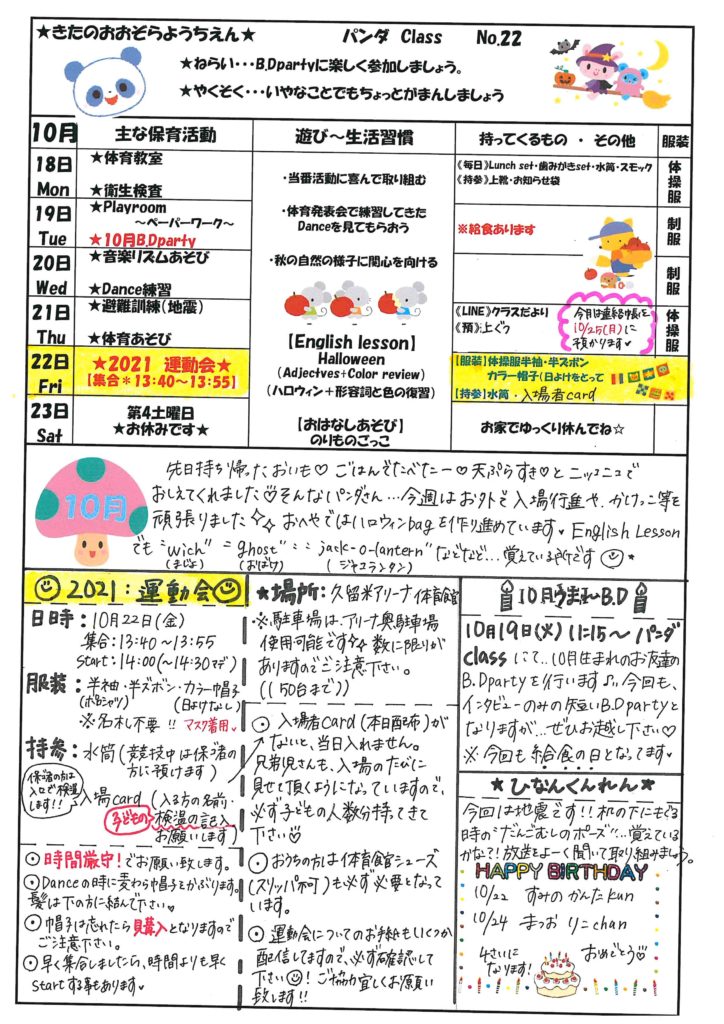 ★きたのおおぞらようちえん★ パンダ Class No.22
★ねらい・・・B,Dpartyに楽しく参加しましょう。
★やくそく・・・いやなことでもちょっとがまんしましょう
10月 主な保育活動 遊び～生活習慣 持ってくるもの ・ その他 服装
18日 Mon
★体育教室
★衛生検査
・当番活動に喜んで取り組む
《毎日》Lunch set・歯みがきset・水筒・スモック
《持参》上靴・お知らせ袋
体操服
19日 Tue
★Playroom
～ペーパーワーク～
★10月B,Dparty
・体育発表会で練習してきた
Danceを見てもらおう
※給食あります
制服
20日 Wed
★音楽リズムあそび
★Dance練習
・秋の自然の様子に関心を向ける
制服
21日 Thu
★避難訓練(地震)
★体育あそび
【English lesson】
Halloween
(Adjectves+Color review)
(ハロウィン＋形容詞と色の復習)
《LINE》クラスだより
《預》上ぐつ
今月は連絡帳を
10/25(月)に
預かります
体操服
22日 Fri
★2021 運動会★
【集合＊13:40～13:55】
【服装】体操服半袖・半ズボン
カラー帽子(日よけをとって
【持参】水筒・入場者card
23日 Sat
第4土曜日
★お休みです★
【おはなしあそび】
のりものごっこ
お家でゆっくり休んでね☆
10月
先日持ち帰ったおいも♡ ごはんでたべたー♡天ぷらすき♡とニコニコで
おしえてくれました♡そんなパンダさん…今週はお外で入場行進や、かけっこ等を
頑張りました おへやではハロウィンbagを作り進めています♥ English Lesson
でも "wich" "ghost" jack-o-lantern" などなど…覚えているようです
(まじょ) (おばけ) (ジャコランタン)
2021:運動会
日時：10月22日(金)
集合:13:40～13:55
Start:14:00(～14:30マデ)
服装：半袖・半ズボン・カラー帽子
(ポロシャツ) (日よけなし)
※名札不要!! マスク着用
持参：水筒(競技中は保護者の
方に預けます)
保護者の方は
入口で検温
します!!
入場card (入る方の名前・
子どもの検温の記入
お願いします)
⊙時間厳守!でお願い致します。
⊙Danceの時に麦わら帽子をかぶります。
髪は下の方に結んで下さい♡
⊙帽子は忘れたら見購入となりますので
ご注意下さい。
⊙早く集合しましたら、時間よりも早く
Startする事もあります♥
★場所：久留米アリーナ体育館
※駐車場は、アリーナ奥駐車場
使用可能です 数に限りが
ありますのでご注意下さい。
((150台まで))
⊙入場者card(本日配布)が
ないと、当日入れません。
兄弟児さんも、入場のたびに
見せて頂くようになっていますので、
必ず子どもの人数分持ってきて
下さい♡
⊙おうちの方は体育館シューズ
(スリッパ不可)も必ず必要となって
います。
⊙運動会についてのお手紙もいくつか
配信してますので、必ず確認して
下さい! ご協力宜しくお願い
致します!!
10月うまれB.D
10月19日(火) 11:15～ パンダ
classにて…10月生まれのお友達の
B.Dpartyを行います♪。今回も、
インタビューのみの短いB.Dpartyと
なりますが…ぜひお越し下さい♡
※今回も給食の日となってます♥
★ひなんくんれん★
今回は地震です!!机の下にもぐる
時の"だんごむしのポーズ"…覚えている
かな?!放送をよーく聞いて取り組みましょう。
HAPPY BiRTHDAY
10/22 すみの かんたkun
10/24 まつお りこchan
4さいに
なります!
おめでとう♡